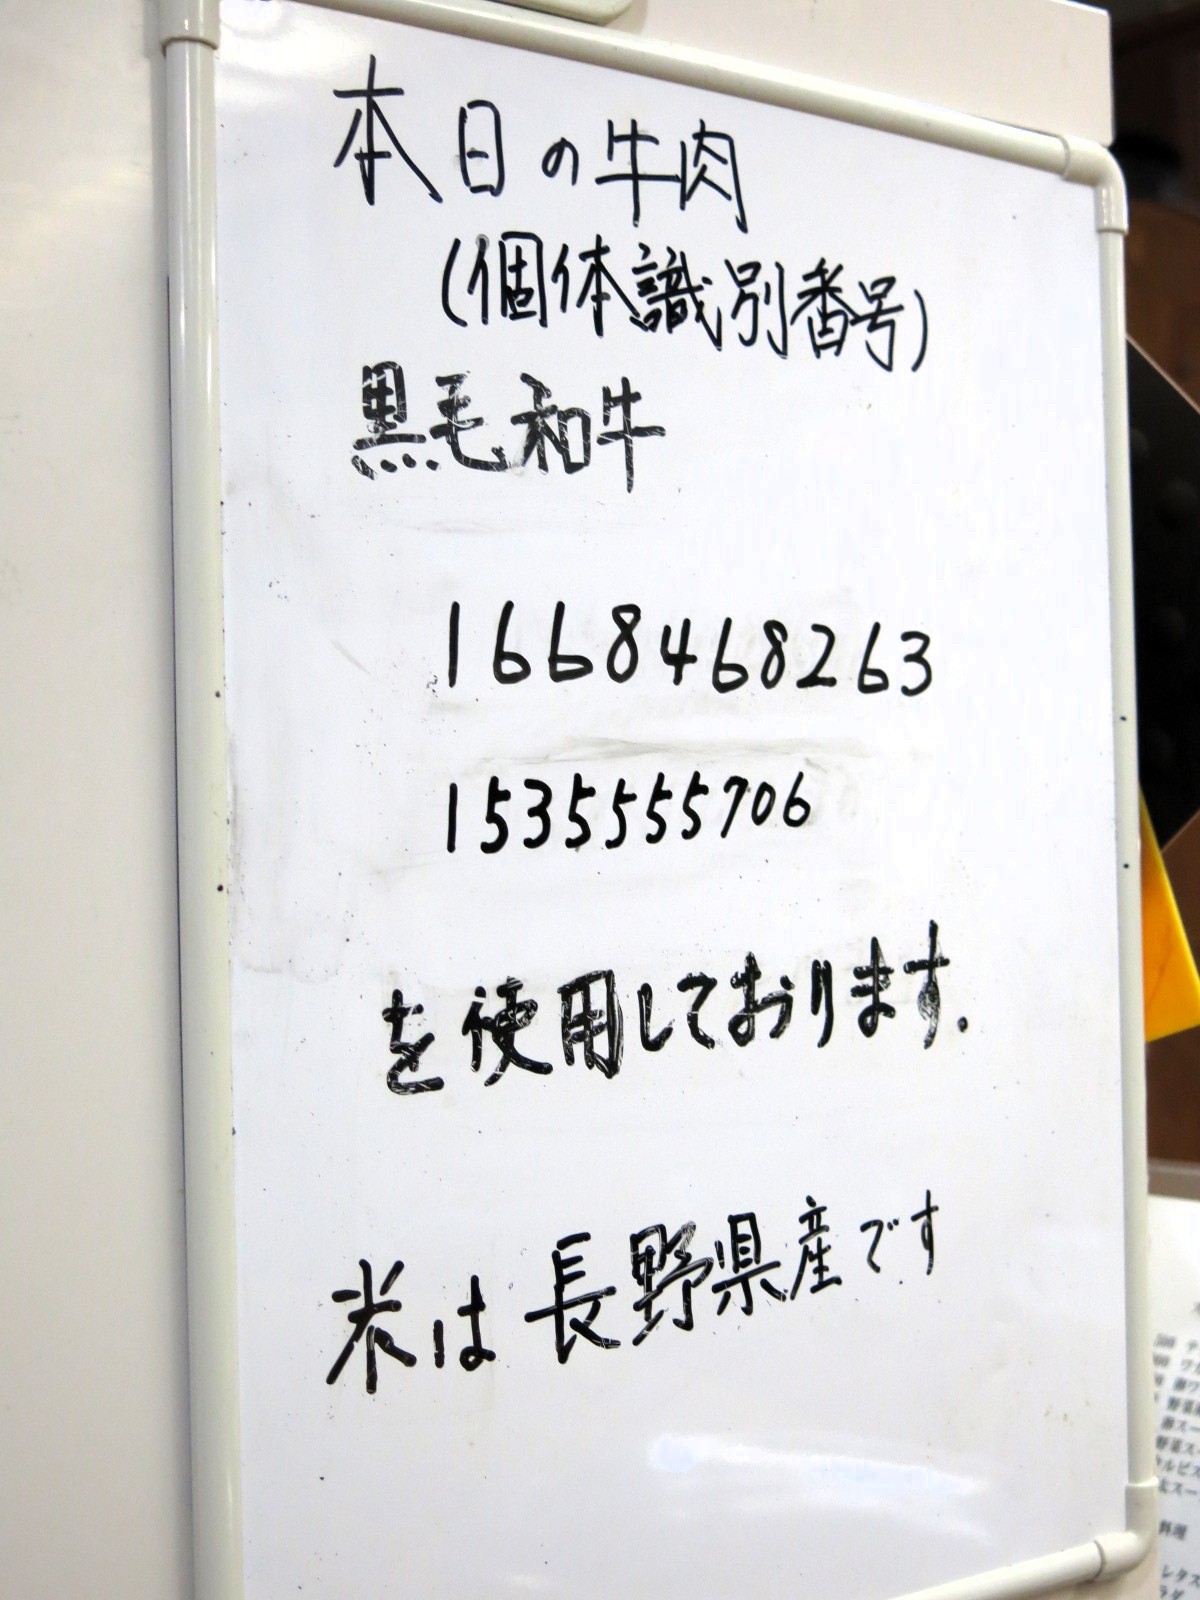 本日の牛肉
(個体識別番号)
黒毛和牛
1668468263
1535555706
を使用しております.
米は長野県産です
料理